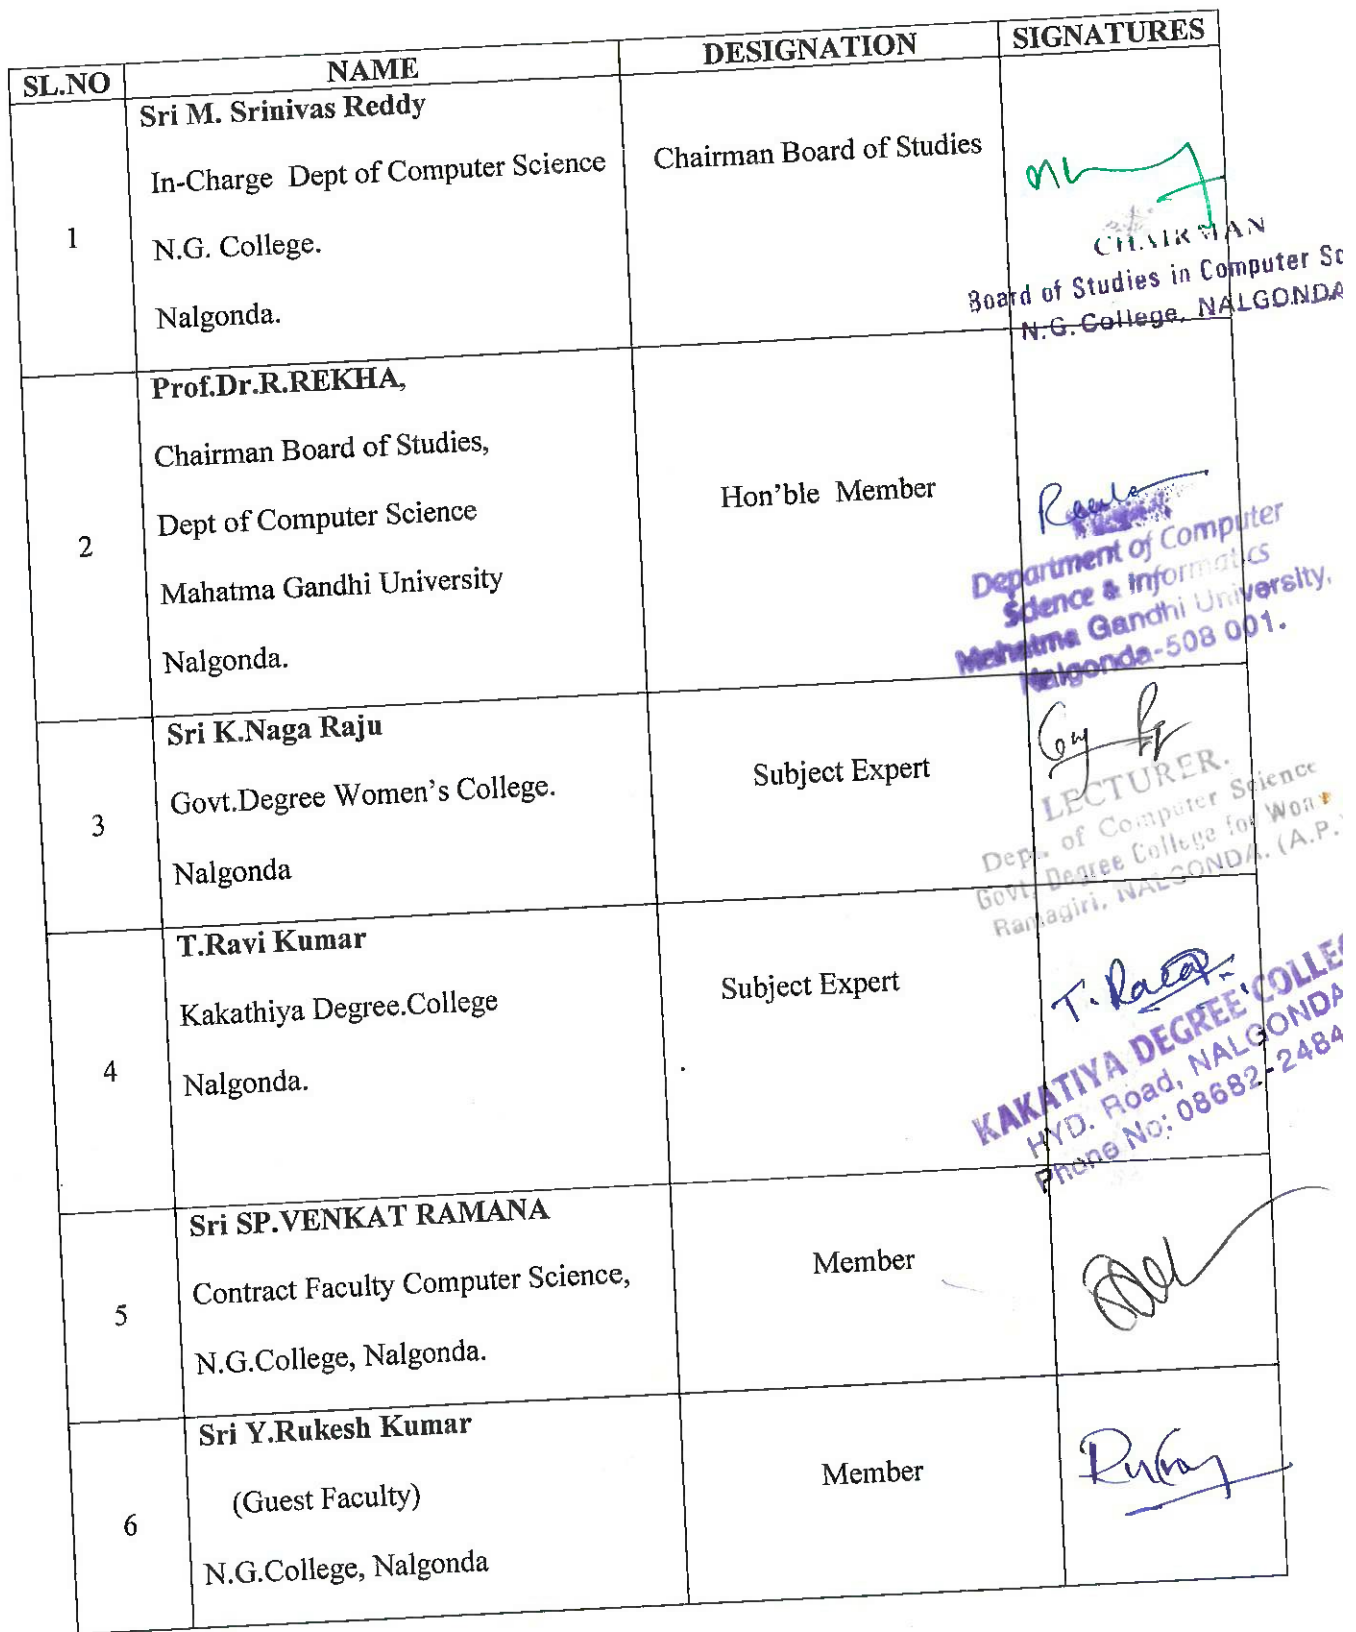 SL.NO NAME DESIGNATION SIGNATURES
1
Sri M. Srinivas Reddy
In-Charge Dept of Computer Science
N.G. College.
Nalgonda.
Chairman Board of Studies
CHAIRMAN
Board of Studies in Computer Sc
N.G. College, NALGONDA
2
Prof.Dr.R.REKHA,
Chairman Board of Studies,
Dept of Computer Science
Mahatma Gandhi University
Nalgonda.
Hon'ble Member
Department of Computer
Science & Informatics
Mahatma Gandhi University,
Nalgonda-508 001.
3
Sri K.Naga Raju
Govt.Degree Women's College.
Nalgonda
Subject Expert
LECTURER.
Dept. of Computer Science
Govt. Degree College for Wom
Ramagiri, NALGONDA. (A.P.
4
T.Ravi Kumar
Kakathiya Degree.College
Nalgonda.
Subject Expert
T.
KAKATIYA DEGREE COLLEG
HYD. Road, NALGONDA
Phone No: 08682-2484
5
Sri SP.VENKAT RAMANA
Contract Faculty Computer Science,
N.G.College, Nalgonda.
Member
6
Sri Y.Rukesh Kumar
(Guest Faculty)
N.G.College, Nalgonda
Member